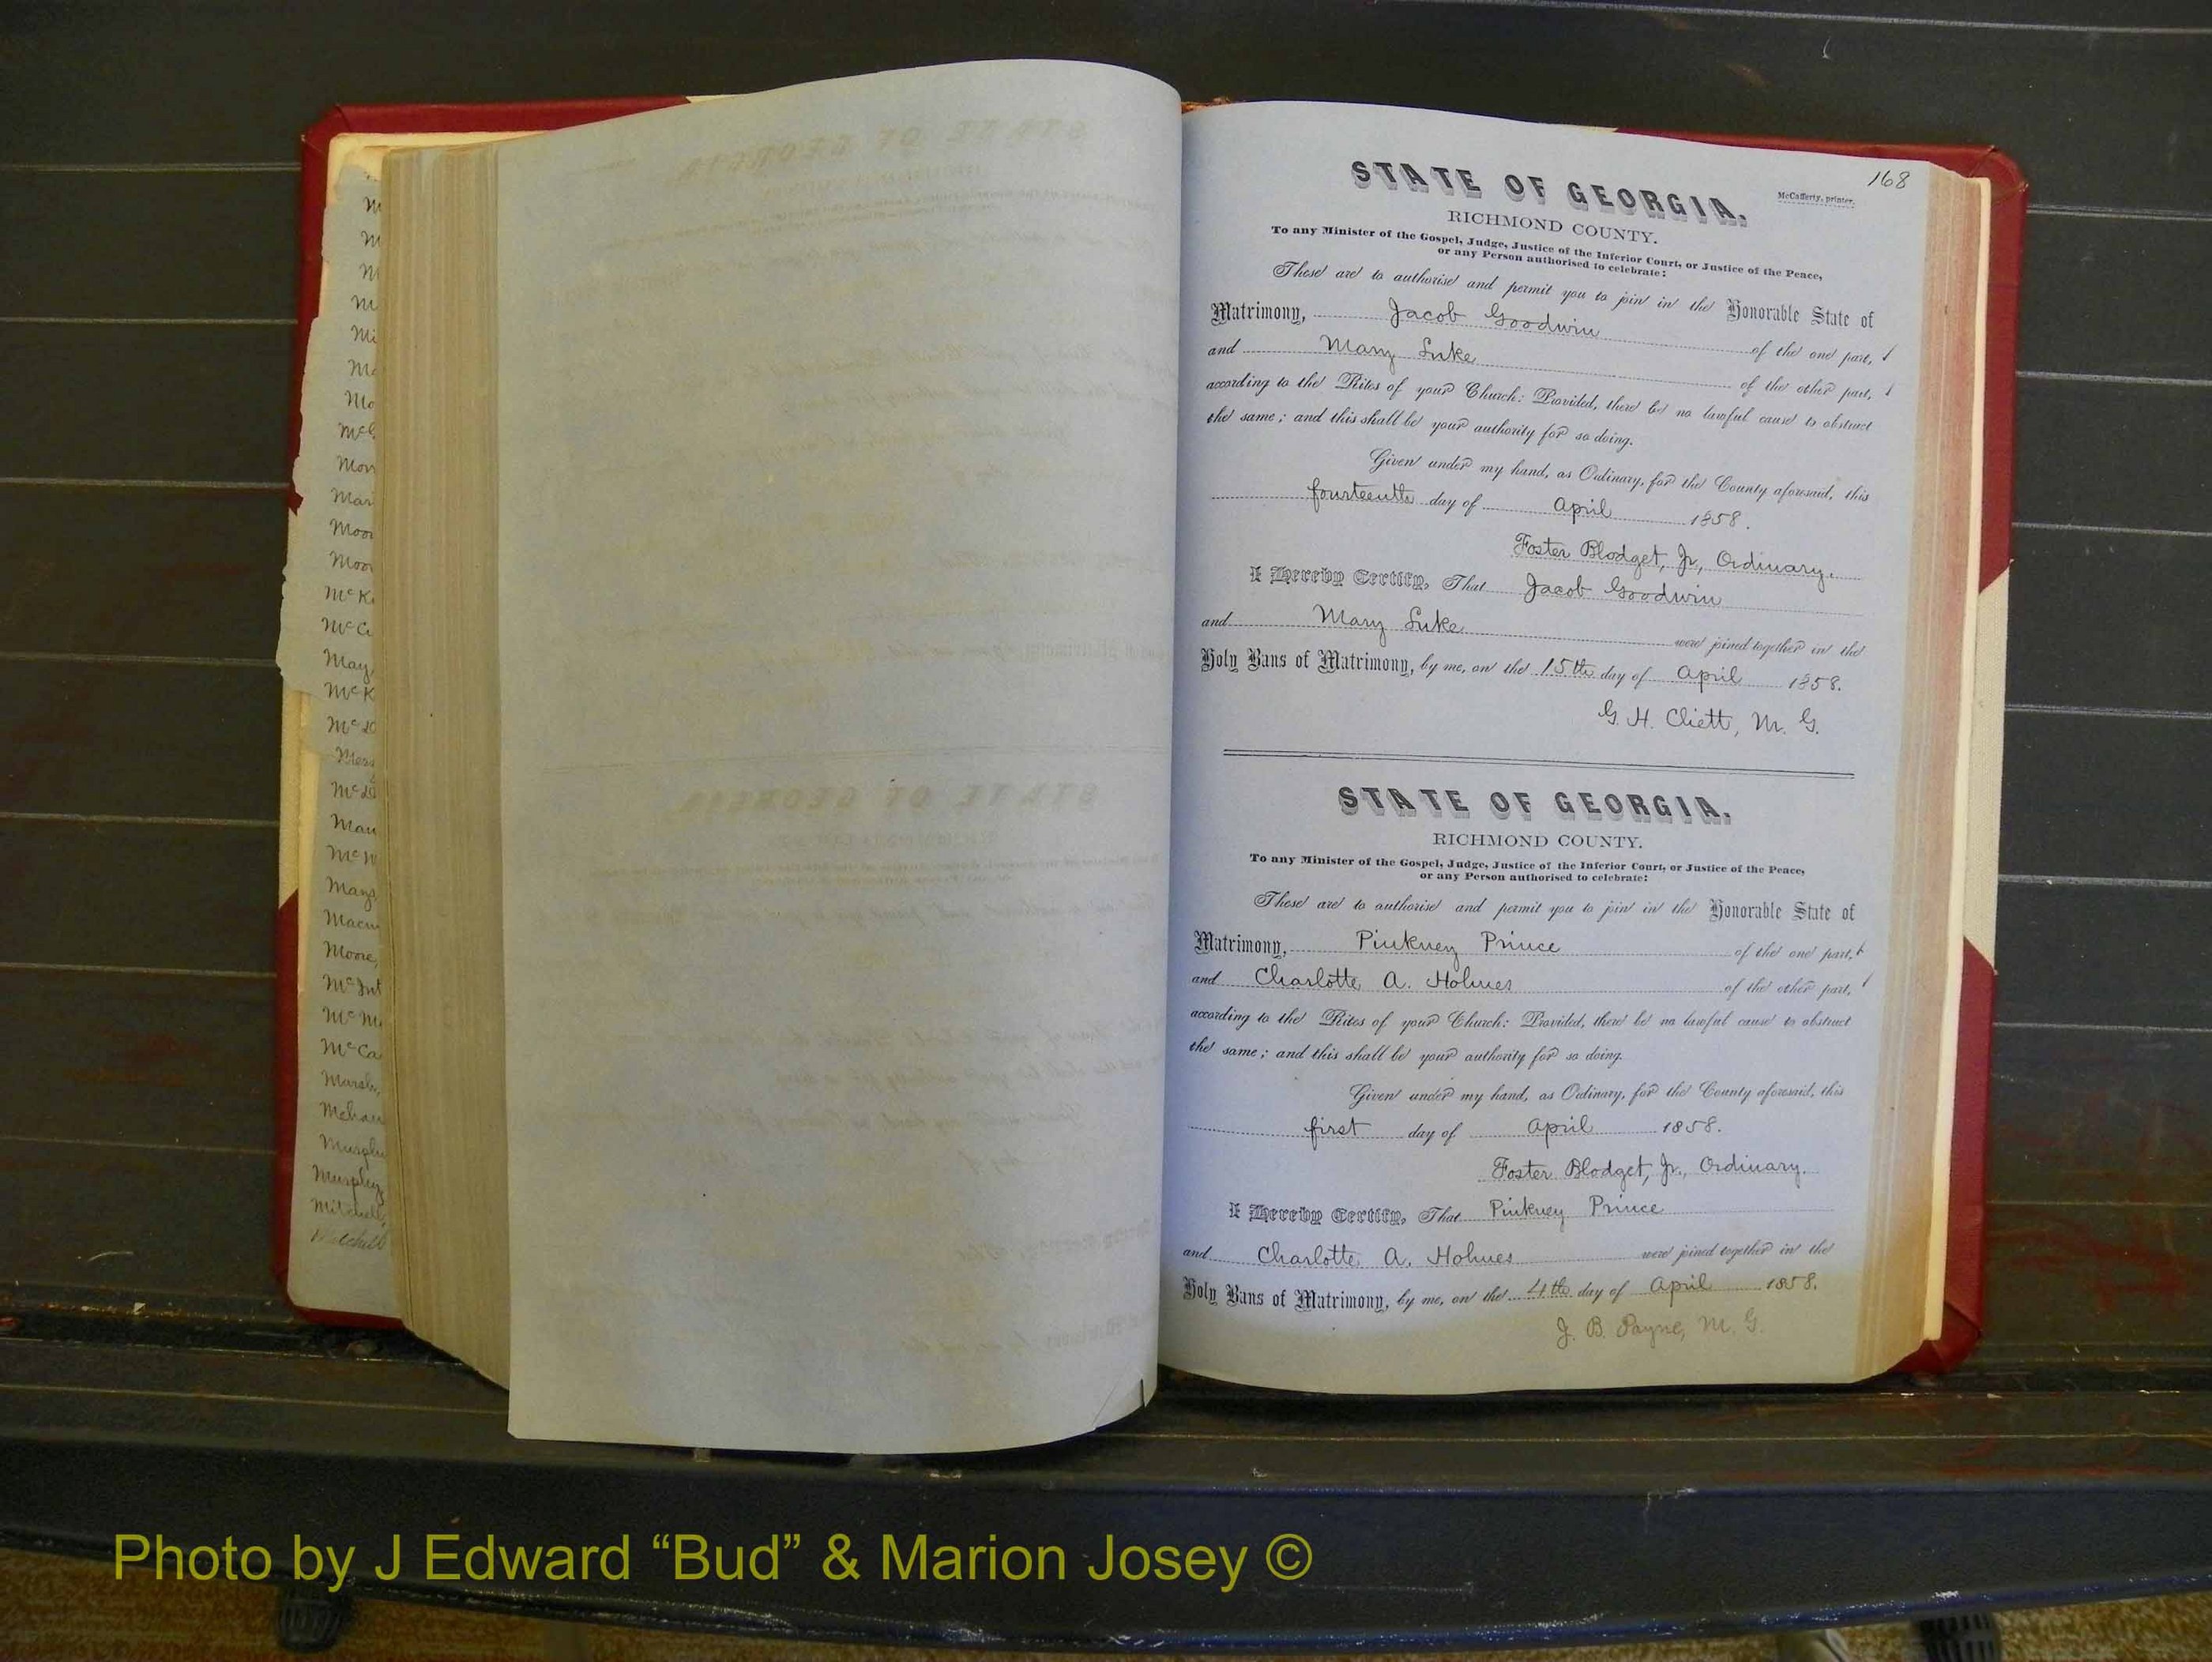 168
McCafferty, printer.
STATE OF GEORGIA.
RICHMOND COUNTY.
To any Minister of the Gospel, Judge, Justice of the Inferior Court, or Justice of the Peace,
or any Person authorised to celebrate:
These are to authorise and permit you to join in the Honorable State of
Matrimony, Jacob Goodwin of the one part,
and Mary Luke of the other part,
according to the Rites of your Church: Provided, there be no lawful cause to obstruct
the same; and this shall be your authority for so doing.
Given under my hand, as Ordinary, for the County aforesaid, this
fourteenth day of April 1858.
Foster Blodget, Jr, Ordinary.
I Hereby Certify, That Jacob Goodwin
and Mary Luke were joined together in the
Holy Bans of Matrimony, by me, on the 15th day of April 1858.
G. H. Cliett, M. G.
STATE OF GEORGIA.
RICHMOND COUNTY.
To any Minister of the Gospel, Judge, Justice of the Inferior Court, or Justice of the Peace,
or any Person authorised to celebrate:
These are to authorise and permit you to join in the Honorable State of
Matrimony, Pinkney Prince of the one part,
and Charlotte A. Holmes of the other part,
according to the Rites of your Church: Provided, there be no lawful cause to obstruct
the same; and this shall be your authority for so doing.
Given under my hand, as Ordinary, for the County aforesaid, this
first day of April 1858.
Foster Blodget, Jr., Ordinary.
I Hereby Certify, That Pinkney Prince
and Charlotte A. Holmes were joined together in the
Holy Bans of Matrimony, by me, on the 4th day of April 1858.
J. B. Payne, M. G.
Photo by J Edward “Bud” & Marion Josey ©